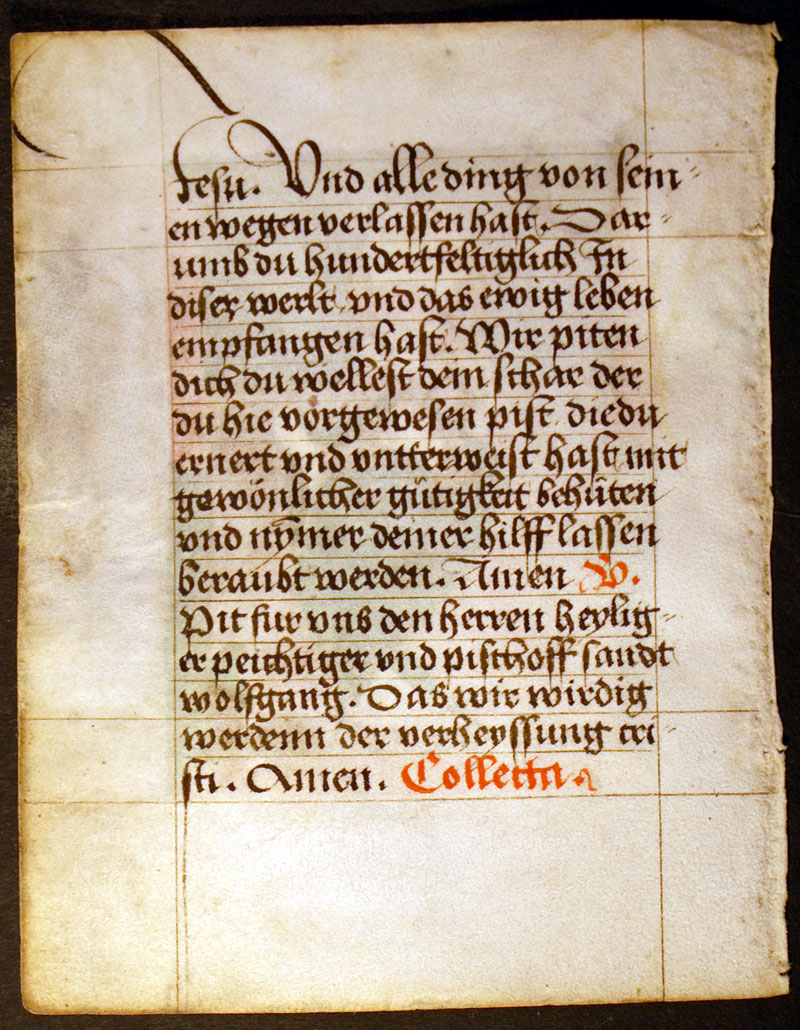 Jesu. Vnd alle ding von sein=
en wegen verlassen hast. Dar=
umb du hundertfeltiglich In
diser werlt vnd das ewig leben
empfangen hast. Wir piten
dich du wellest dem schar der
du hie vorgewesen pist die du
ernert vnd vntterweist hast mit
gewönlicher gütigkeit behüten
vnd nÿmer deiner hilff lassen
beraubt werden. Amen V.
Pit fur vns den herren heylig=
er peichtiger vnd pischoff sandt
wolfgang. Das wir wirdig
werdenn der verheyssung cri=
sti. Amen. Collecta.